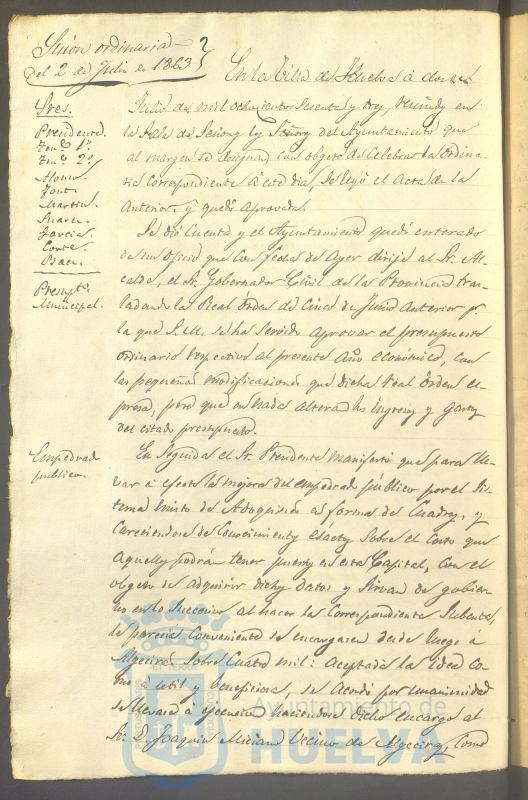 Sesion ordinaria
del 2 de Julio de 1863
En la Villa de Huelva á dos de
Sres.
Presidente.
Tene. 1º
Tene. 2º
Alonso
Font.
Martin.
Suarez.
Garcia.
Corte.
Baez.
Julio de mil ochocientos sesenta y tres, reunidos en
la Sala de Sesiones los Señores del Ayuntamiento que
al margen se designan, con objeto de celebrar la ordina-
ria correspondiente á este dia, se leyó el Acta de la
anterior, y quedó aprovada.
Presupto.
Municipal.
Se dió cuenta y el Ayuntamiento quedó enterado
de un oficio que con fecha de ayer dirije al Sr. Al-
calde, el Sr. Gobernador Civil de la Provincia tras-
ladando la Real órden de cinco de Junio anterior pr.
la que S. M. se ha servido aprovar el presupuesto
ordinario respectivo al presente año económico, con
las pequeñas modificaciones que dicha Real órden es-
presa, pero que en nada altera los ingresos y gastos
del citado presupuesto.
Empedrado
publico.
En seguida el Sr. Presidente manifestó que para lle-
var á efecto la mejora del empedrado público por el sis-
tema misto de Adoquines en forma de cuadros, y
careciendose de conocimientos esactos sobre el costo que
aquellos podrán tener puestos en esta Capital, con el
objeto de adquirir dichos datos y sirvan de gobier-
no en lo succesivo al hacer las correspondientes subastas,
le parecia conveniente se encargasen desde luego á
Algeciras sobre cuatro mil: aceptada la idea co-
mo á util y beneficiosa, se acordó por unanimidad
se llevara á ejecucion haciendose dicho encargo al
Sr. D. Joaquin Miciano vecino de Algeciras, como
Ayuntamiento de
HUELVA